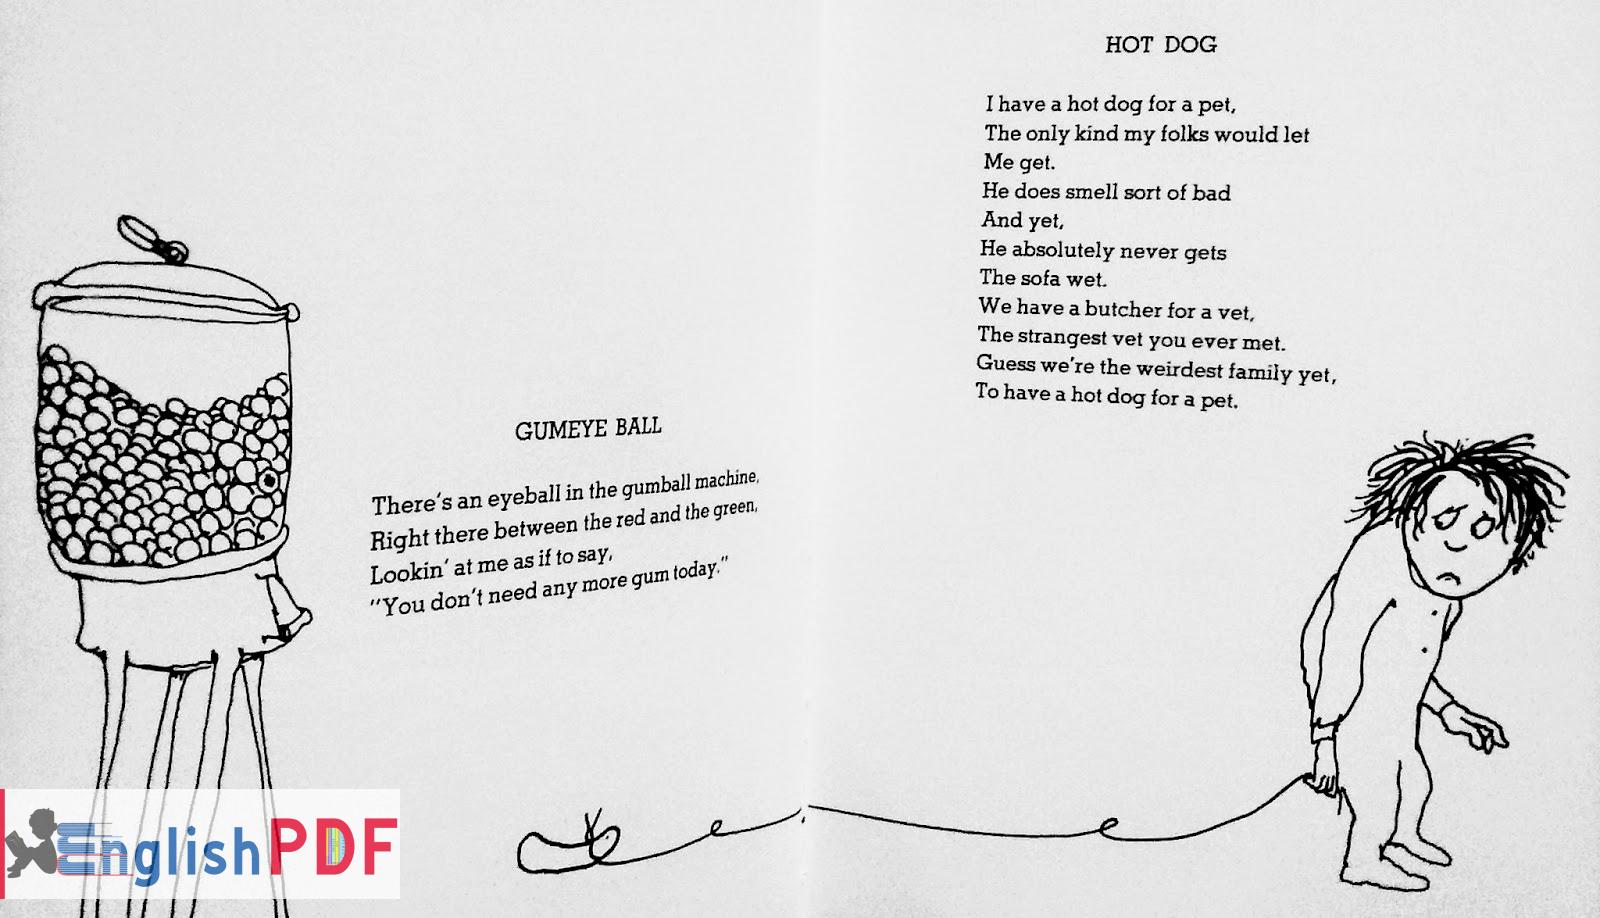 GUMEYE BALL
There's an eyeball in the gumball machine,
Right there between the red and the green,
Lookin' at me as if to say,
"You don't need any more gum today."
HOT DOG
I have a hot dog for a pet,
The only kind my folks would let
Me get.
He does smell sort of bad
And yet,
He absolutely never gets
The sofa wet.
We have a butcher for a vet,
The strangest vet you ever met.
Guess we're the weirdest family yet,
To have a hot dog for a pet.
EnglishPDF